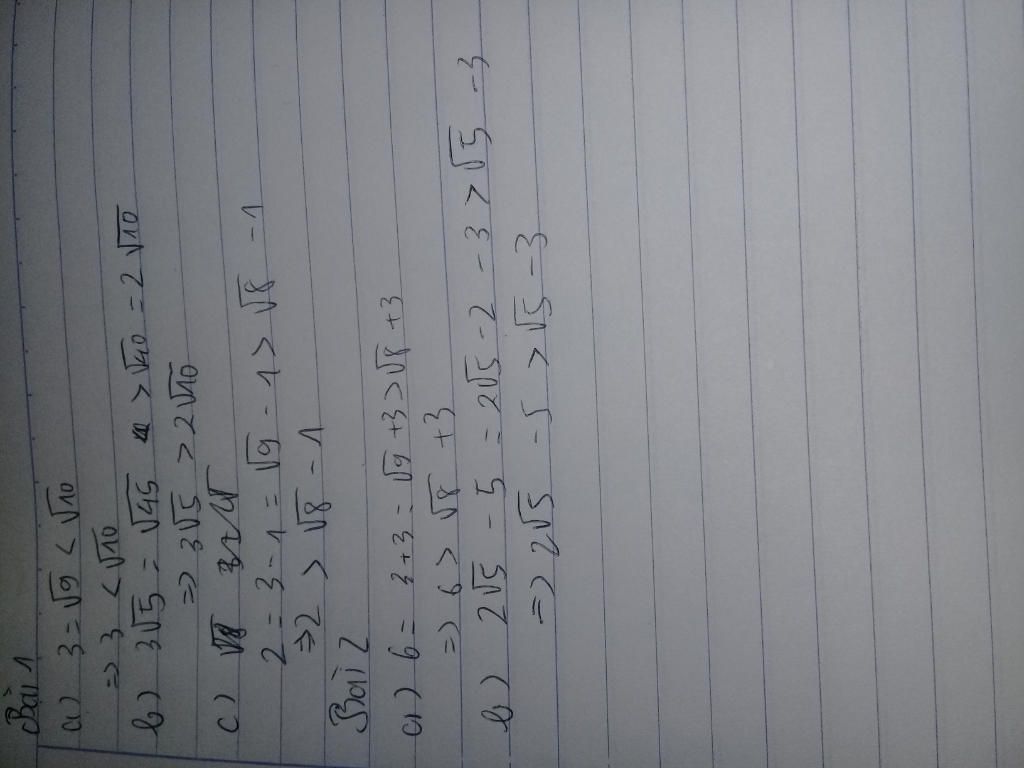 Bài 1
a) 3 = √9 < √10
=> 3 < √10
b) 3√5 = √45 > √40 = 2√10
=> 3√5 > 2√10
c)
2 = 3 - 1 = √9 - 1 > √8 - 1
=> 2 > √8 - 1
Bài 2
a) 6 = 3 + 3 = √9 + 3 > √8 + 3
=> 6 > √8 + 3
b) 2√5 - 5 = 2√5 - 2 - 3 > √5 - 3
=> 2√5 - 5 > √5 - 3